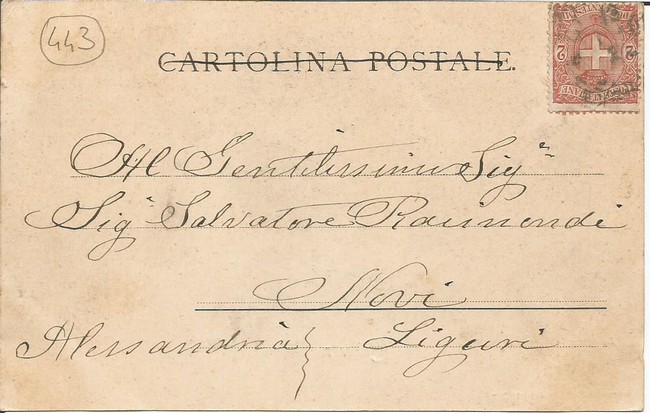 443
CARTOLINA POSTALE.
Al Gentilissimo Sigʳᵉ
Sigʳ Salvatore Raimondi
Novi
Alessandria } Liguri
2 2